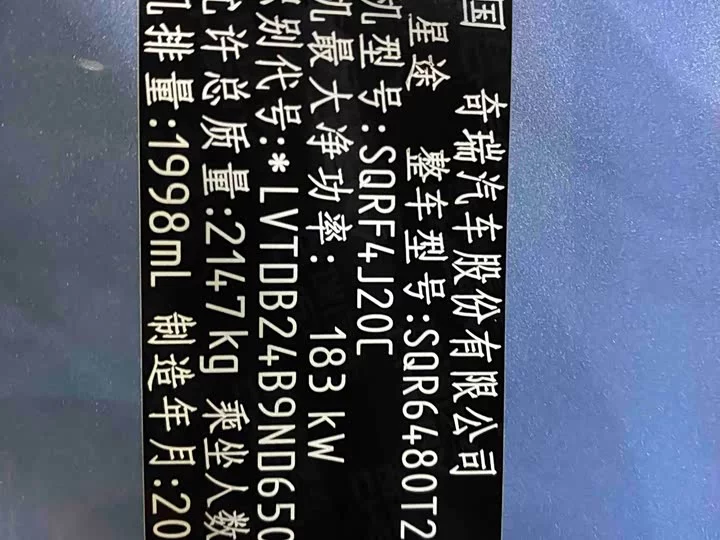 国 奇瑞汽车股份有限公司
星途 整车型号:SQR6480T2
机型号:SQRF4J20C
机最大净功率: 183kW
别代号:*LVTDB24B9ND650
许总质量:2147kg 乘坐人数
排量:1998mL 制造年月:20